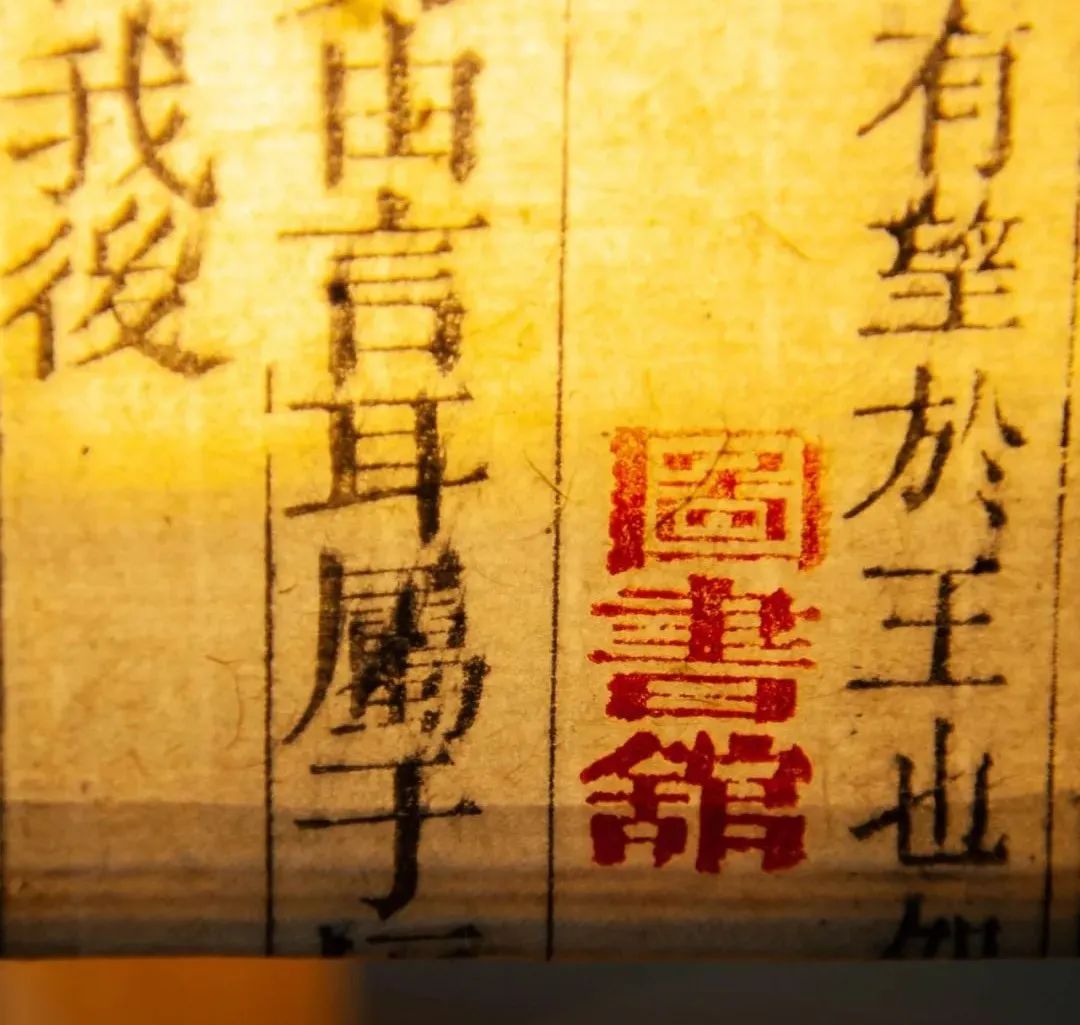 有望於王也
圖書館
由言耳屬于
我後